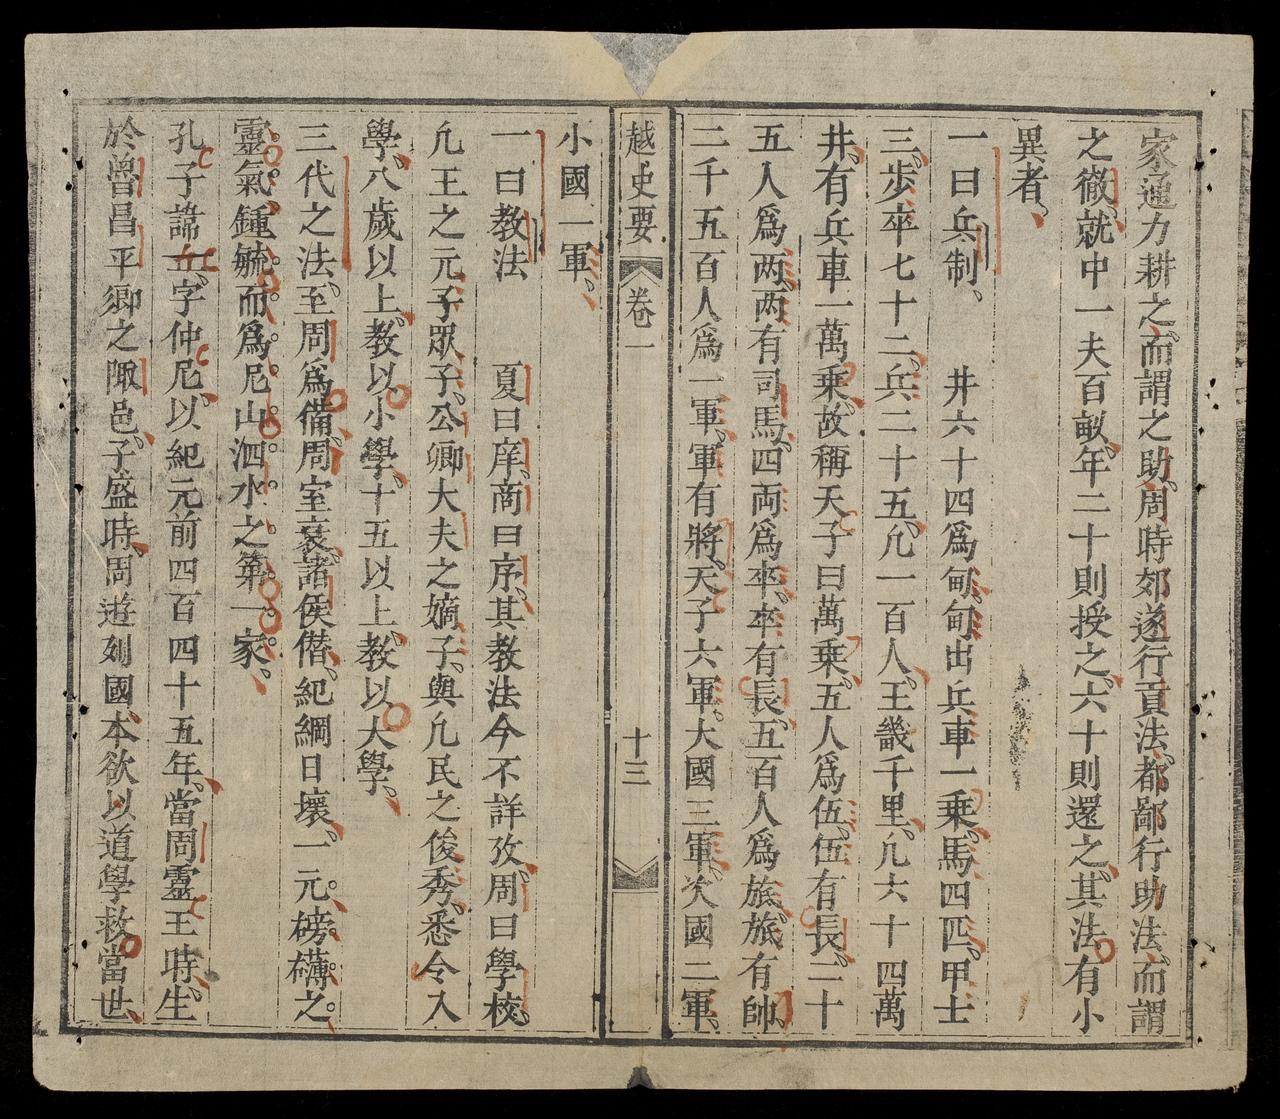 家通力耕之而謂之助、周時郊遂行貢法、都鄙行助法、而謂
之徹、就中一夫百畝、年二十則授之、六十則還之、其法有小
異者、
一曰兵制、 井六十四爲甸、甸出兵車一乗、馬四匹、甲士
三、步卒七十二、兵二十五、凢一百人、王畿千里、凢六十四萬
井、有兵車一萬乗、故稱天子曰萬乗、五人爲伍、伍有長、二十
五人爲两、两有司馬、四両爲卒、卒有長、五百人爲旅、旅有帥、
二千五百人爲一軍、軍有將、天子六軍、大國三軍、次國二軍、
越史要 卷一 十三
小國一軍、
一曰教法 夏曰庠、商曰序、其教法今不詳攷、周曰學校、
凢王之元子眾子、公卿大夫之嫡子、與凢民之俊秀、悉令入
學、八歲以上、教以小學、十五以上、教以大學、
三代之法、至周爲備、周室衰、諸侯僭、紀綱日壞、一元磅礴之
靈氣、鍾毓而爲尼山泗水之第一家、
孔子諱丘、字仲尼、以紀元前四百四十五年、當周靈王時、生
於曾昌平鄉之陬邑、子盛時、周遊列國、本欲以道學救當世、